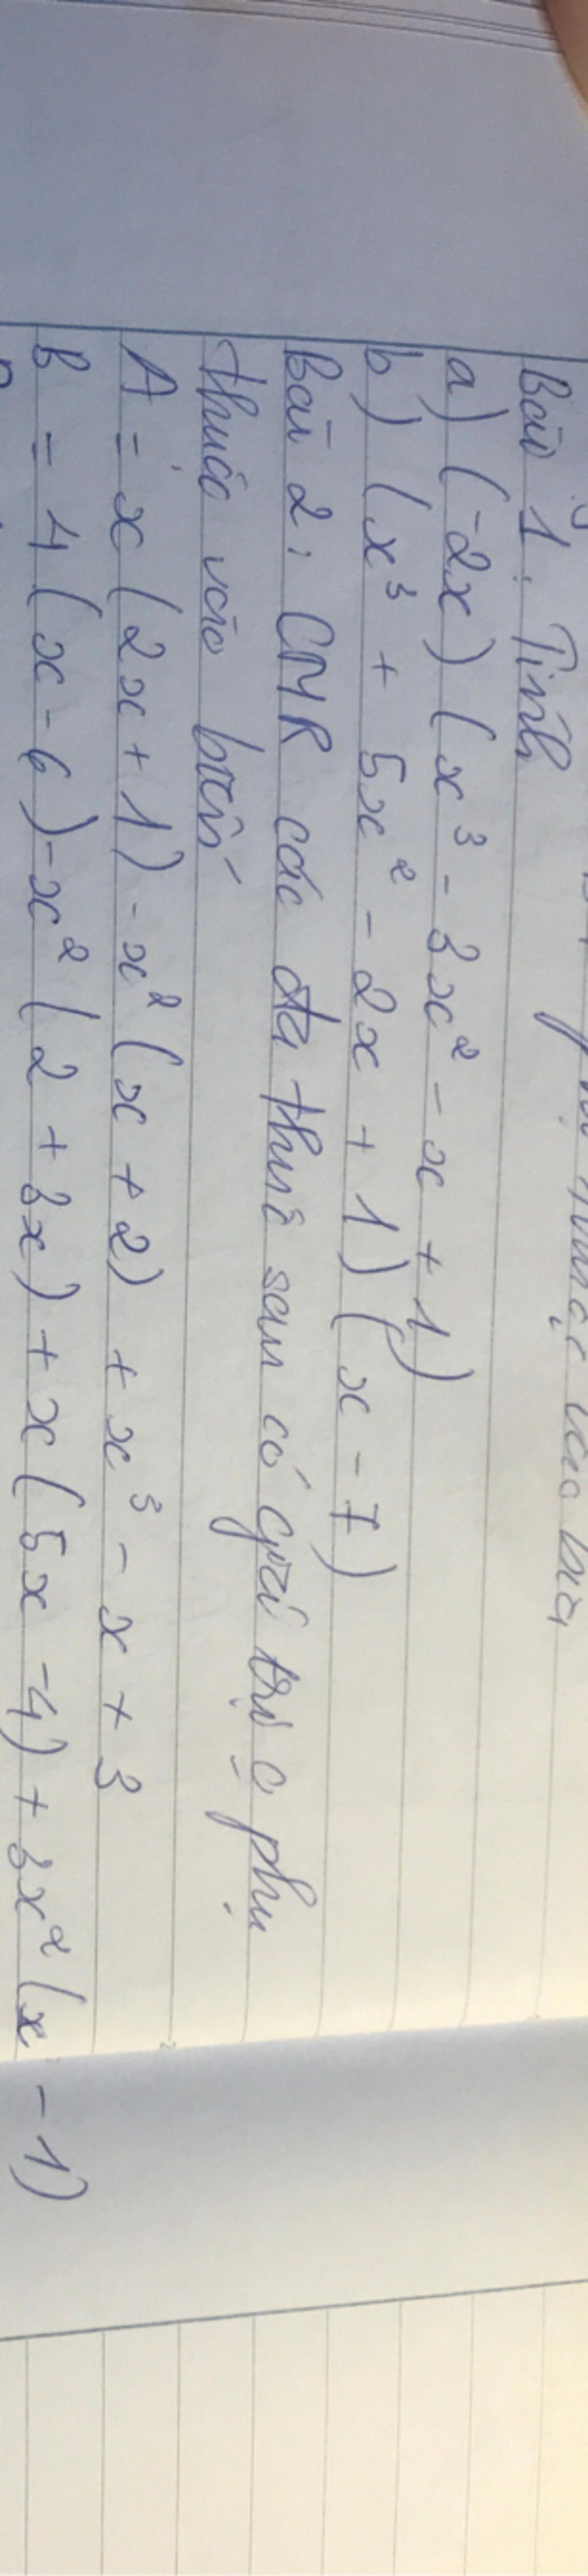 vào biến
Bài 1: Tính
a) (-2x) (x³ - 3x² - x + 1)
b) (x³ + 5x² - 2x + 1) (x - 7)
Bài 2: CMR các đa thức sau có giá trị o phụ
thuộc vào biến
A = x (2x + 1) - x² (x + 2) + x³ - x + 3
B = 4 (x - 6) - x² (2 + 3x) + x (5x - 4) + 3x² (x - 1)